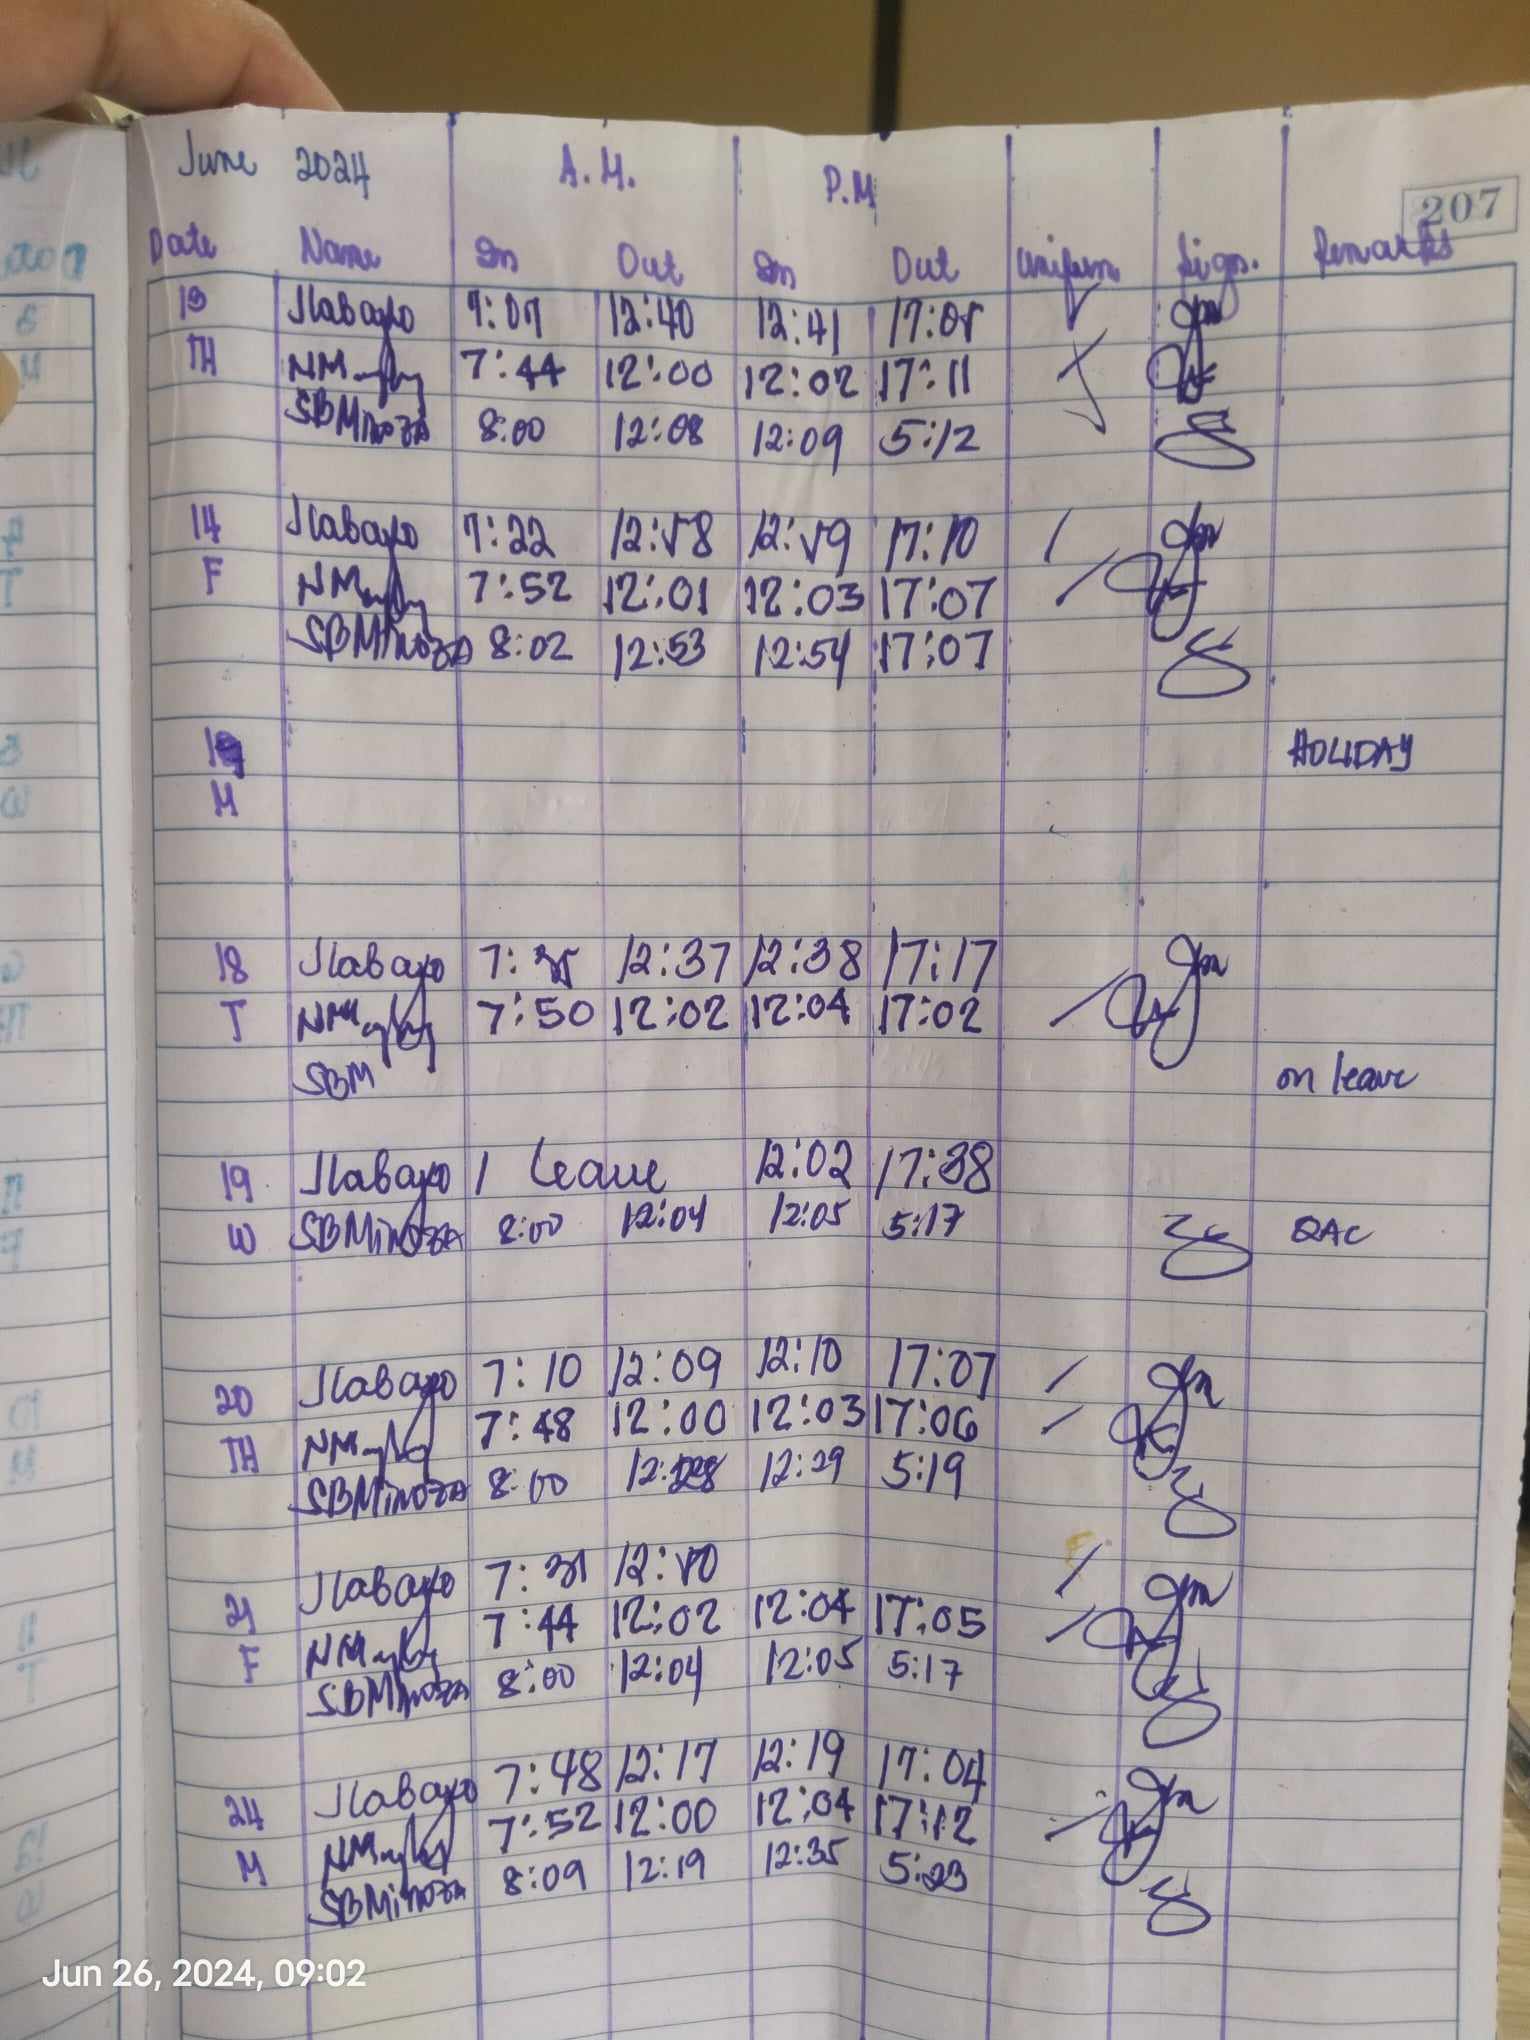 June 2024 A.M. P.M
207
Date Name In Out In Out Uniform Sign. Remarks
13 Jlabayo 7:07 12:40 12:41 17:05
TH 7:44 12:00 12:02 17:11
SBMinoza 8:00 12:08 12:09 5:12
14 Jlabayo 7:22 12:58 12:59 17:10
F 7:52 12:01 12:03 17:07
SBMinoza 8:02 12:53 12:54 17:07
HOLIDAY
M
18 Jlabayo 7:35 12:37 12:38 17:17
T 7:50 12:02 12:04 17:02
SBM on leave
19 Jlabayo / leave 12:02 17:38
W SBMinoza 8:00 12:04 12:05 5:17 QAC
20 Jlabayo 7:10 12:09 12:10 17:07
TH 7:48 12:00 12:03 17:06
SBMinoza 8:00 12:28 12:29 5:19
21 Jlabayo 7:31 12:50
F 7:44 12:02 12:04 17:05
SBMinoza 8:00 12:04 12:05 5:17
24 Jlabayo 7:48 12:17 12:19 17:04
M 7:52 12:00 12:04 17:12
SBMinoza 8:09 12:19 12:35 5:23
Jun 26, 2024, 09:02